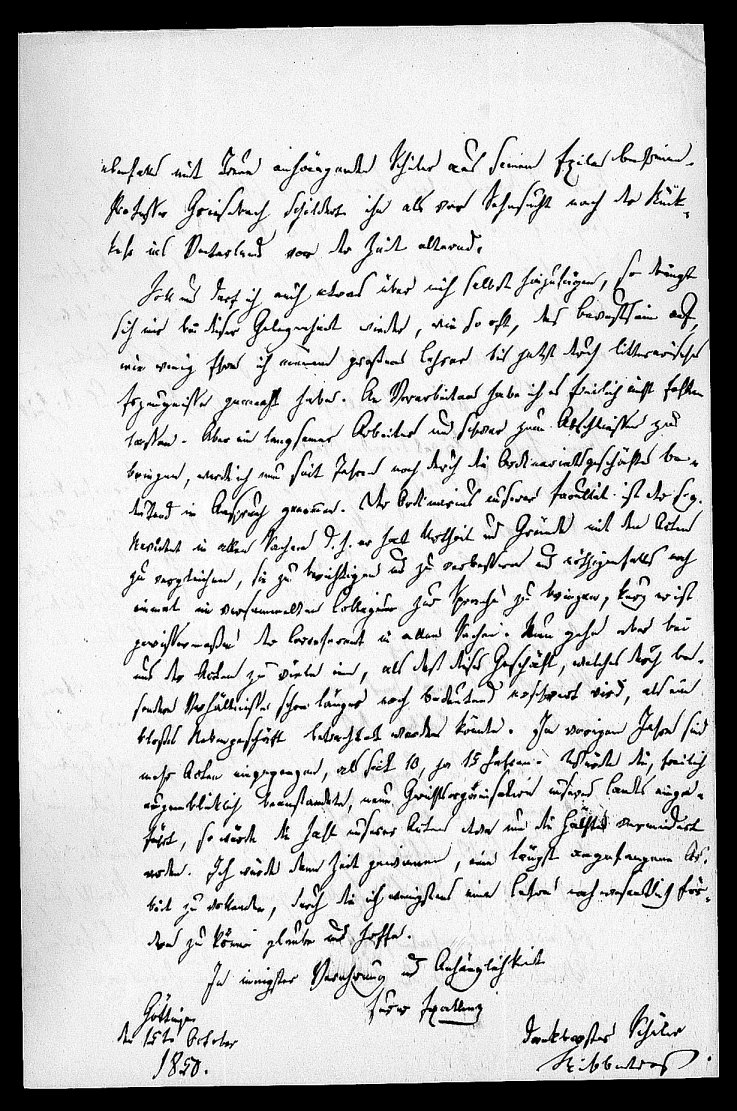 ebenfalls mit Treue anhängende Schüler aus seinem Exile
Professor Grisebach schildert ihn als vor Sehnsucht nach der Rück-
kehr ins Vaterland vor der Zeit alternd.
Soll und darf ich auch etwas über mich selbst hinzufügen, so drängt
sich mir bei dieser Gelegenheit wieder, wie so oft, das Bewußtsein auf,
wie wenig Ehre ich meinem großen Lehrer bis jetzt durch litterarische
Erzeugnisse gemacht habe. An Vorarbeiten habe ich es freilich nicht fehlen
lassen. Aber ein langsamer Arbeiter und schwer zum Abschließen zu
bringen, werde ich nun seit Jahren noch durch die Ordinariatsgeschäfte be-
deutend in Anspruch genommen. Der Ordinarius unserer Facultät ist der
in allen Sachen d. h. er hat Urtheil und Gründe mit den Acten
zu vergleichen, sie zu berichtigen und zu verbessern und nöthigenfalls noch
einmal im versammelten Collegium zur Sprache zu bringen, kurz er ist
gewissermaßen der Correferent in allen Sachen. Nun gehen aber bei
uns der Acten zu viele ein, als daß dieses Geschäft, welches durch be-
sondere Verhältnisse schon länger noch bedeutend erschwert wird, als ein
bloßes Nebengeschäft betrachtet werden könnte. Im vorigen Jahre sind
mehr Acten eingegangen, als seit 10, ja 15 Jahren. Würde die, freilich
augenblicklich beanstandete, neue Gerichtsorganisation unseres Landes einge-
führt, so würde die Zahl unserer Acten etwa um die Hälfte vermindert
werden. Ich würde dann Zeit gewinnen, eine längst angefangene Ar-
beit zu vollenden, durch die ich wenigstens eine Lehre noch wesentlich för-
dern zu können glaube und hoffe.
In innigster Verehrung und Anhänglichkeit
Eurer Excellenz
Göttingen
den 15ten October
1850.
dankbarster Schüler
Ribbentrop.